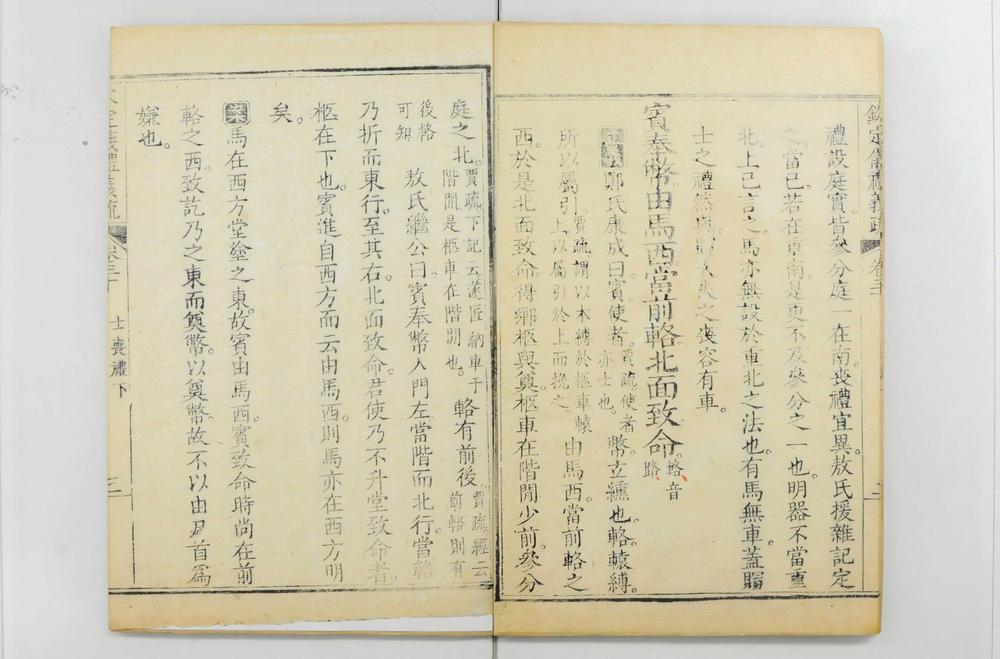 欽定儀禮義疏 卷三
禮設庭實皆參分庭一在南。喪禮宜異。敖氏援雜記定
之當已。若在東南。是更不及參分之一也。明器不當重
北。上已言之。馬亦無設於重北之法也。有馬無車。蓋賵
士之禮然與。大夫之喪容有車。
賓奉幣由馬西當前輅北面致命。輅音路
鄭氏康成曰。賓使者。賈疏。使者亦士也。幣立纁也。輅。轅縛。
所以屬引。賈疏。謂以木縛於柩車轅上。以屬引於上而挽之。由馬西。當前輅之
西。於是北面致命。得鄉柩與奠。柩車在階閒少前。參分
庭之北。賈疏。下記云。遂匠納車于階閒。是柩車在階閒也。輅有前後。賈疏。經云前輅。則有
後輅可知。敖氏繼公曰。賓奉幣入門左。當階而北行。當輅
乃折而東行。至其右。北面致命。君使乃不升堂致命者。
柩在下也。賓進自西方而云由馬西。則馬亦在西方明
矣。
案馬在西方堂塗之東。故賓由馬西。賓致命時尚在前
輅之西。致訖。乃之東而奠幣。以奠幣。故不以由馬首為
嫌也。
欽定儀禮義疏 卷三十 士喪禮下 三